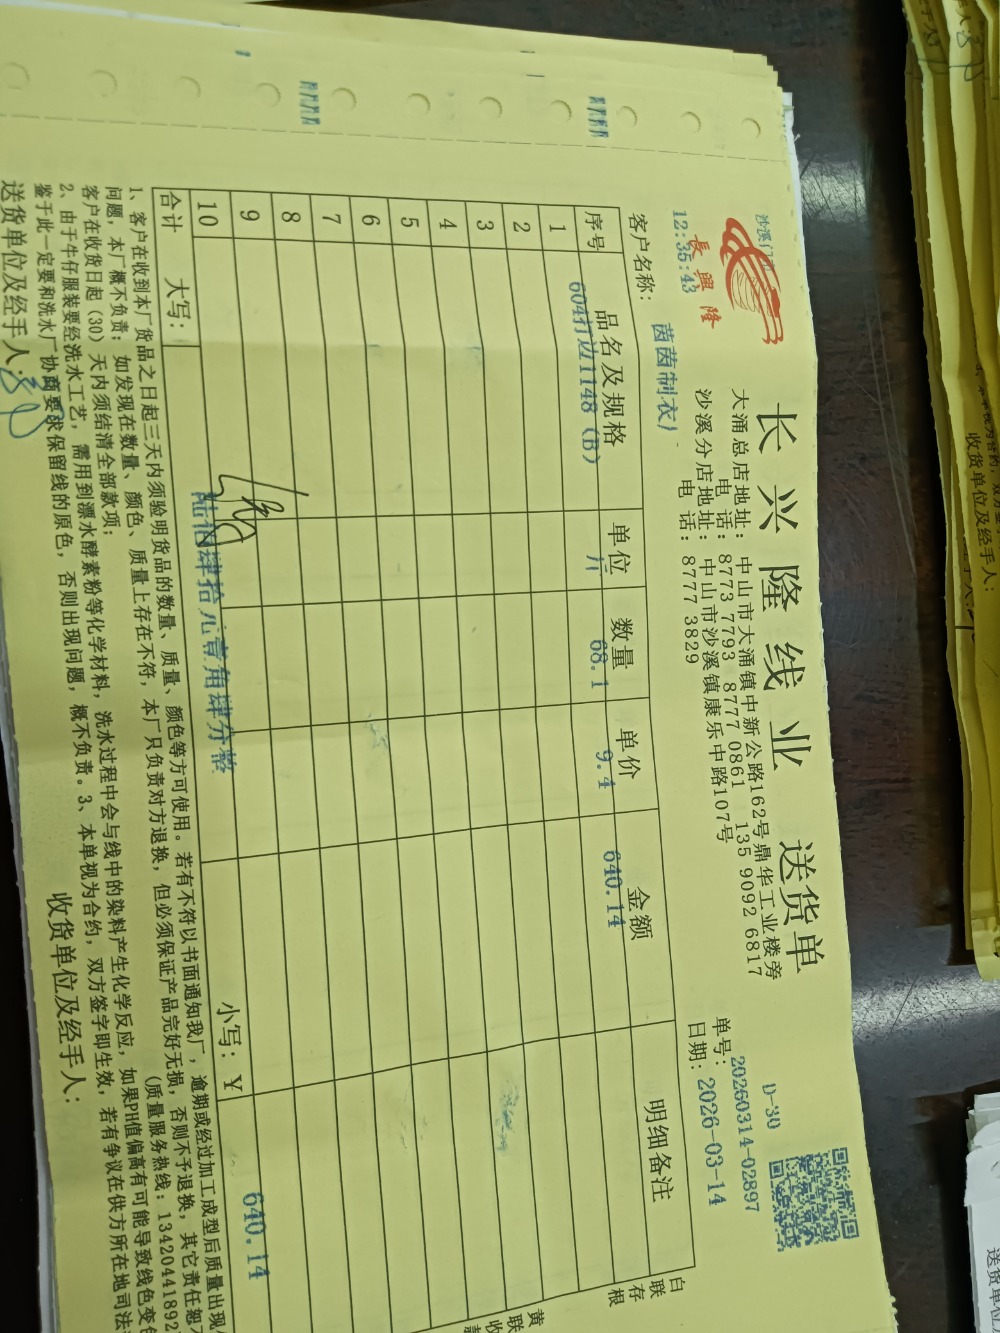 長興隆
12:35:43
长兴隆线业 送货单
大涌总店地址: 中山市大涌镇中新公路162号鼎华工业楼旁
电 话: 8773 7793 8777 0861 135 9092 6817
沙溪分店地址: 中山市沙溪镇康乐中路107号
电 话: 8777 3829
D-30
单号: 20260314-02897
日期: 2026-03-14
客户名称: 茵茵制衣厂
序号 品名及规格 单位 数量 单价 金额 明细备注
1 604打边1148 (B) 斤 68.1 9.4 640.14
2
3
4
5
6
7
8
9
10
合计 大写: 陆佰肆拾元壹角肆分整 小写: ¥ 640.14
白联存根
黄联收
1、客户在收到本厂货品之日起三天内须验明货品的数量、质量、颜色等方可使用。若有不符以书面通知我厂, 逾期或经过加工成型后质量出现
问题, 本厂概不负责; 如发现在数量、颜色、质量上存在不符, 本厂只负责对方退换, 但必须保证产品完好无损, 否则不予退换, 其它责任恕
客户在收货日起 (30) 天内须结清全部款项; (质量服务热线: 13420441892
2、由于牛仔服装要经洗水工艺, 需用到漂水酵素粉等化学材料, 洗水过程中会与线中的染料产生化学反应, 如果PH值偏高有可能导致线色变
鉴于此一定要和洗水厂协商要求保留线的原色, 否则出现问题, 概不负责。3、本单视为合约, 双方签字即生效, 若有争议在供方所在地司法
送货单位及经手人: 收货单位及经手人:
收货单位及经手人: